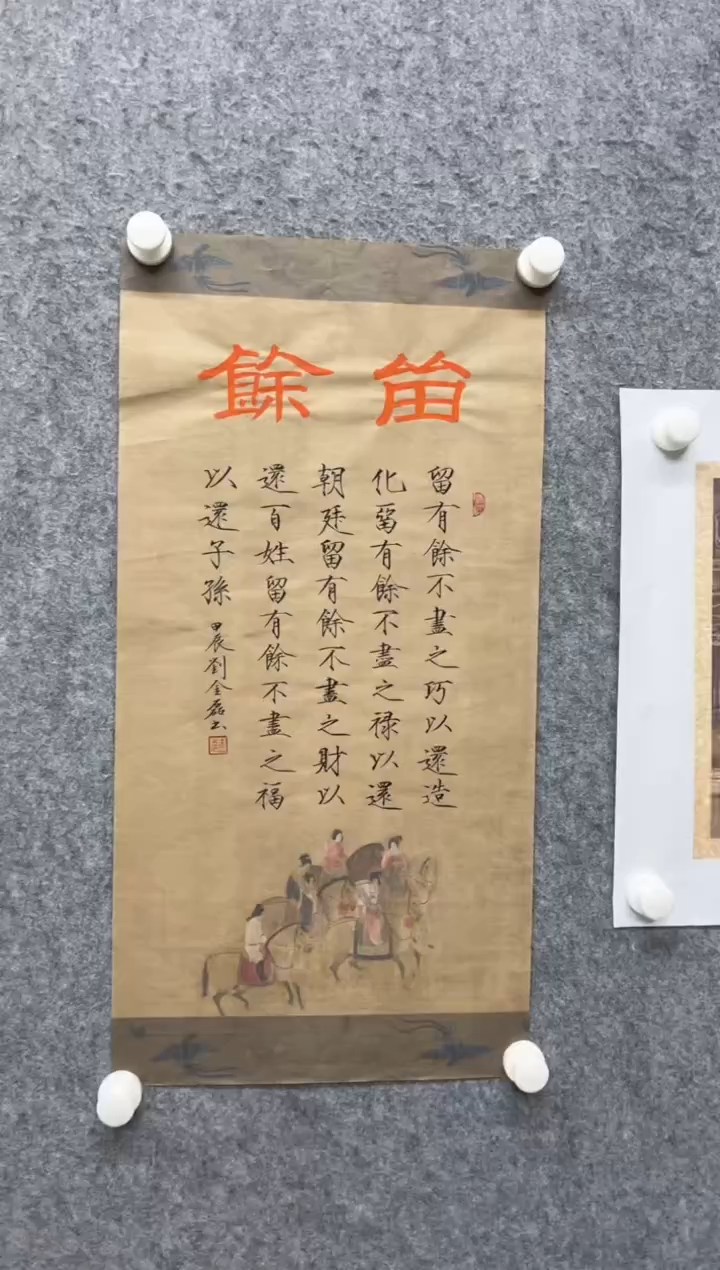 留餘
留有餘不盡之巧以還造
化留有餘不盡之禄以還
朝廷留有餘不盡之財以
還百姓留有餘不盡之福
以還子孫
甲辰劉金磊书